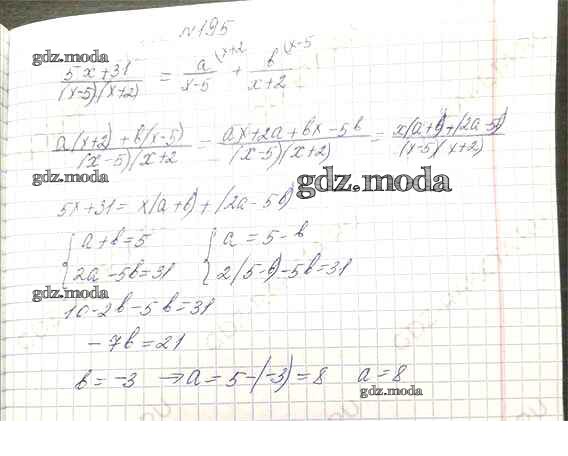 №195
gdz.moda
(5x+31)/((x-5)(x+2)) = a/(x-5) (x+2 + b/(x+2) (x-5
(a(x+2)+b(x-5))/((x-5)(x+2) = (ax+2a+bx-5b)/((x-5)(x+2)) = (x(a+b)+(2a-5b))/((x-5)(x+2))
gdz.moda
5x+31=x(a+b)+(2a-5b)
{ a+b=5 { a=5-b
2a-5b=31 2(5-b)-5b=31
gdz.moda
10-2b-5b=31
-7b=21
b=-3 → a=5-(-3)=8 a=8
gdz.moda